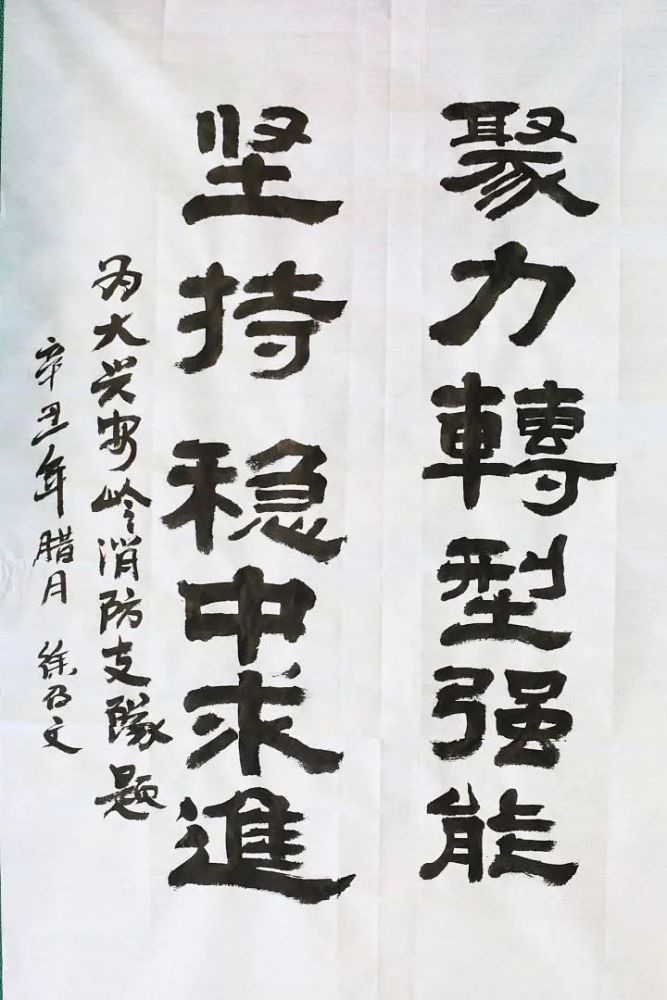 聚力轉型强能
坚持稳中求進
为大兴安岭消防支隊题
辛丑年腊月 徐乃文